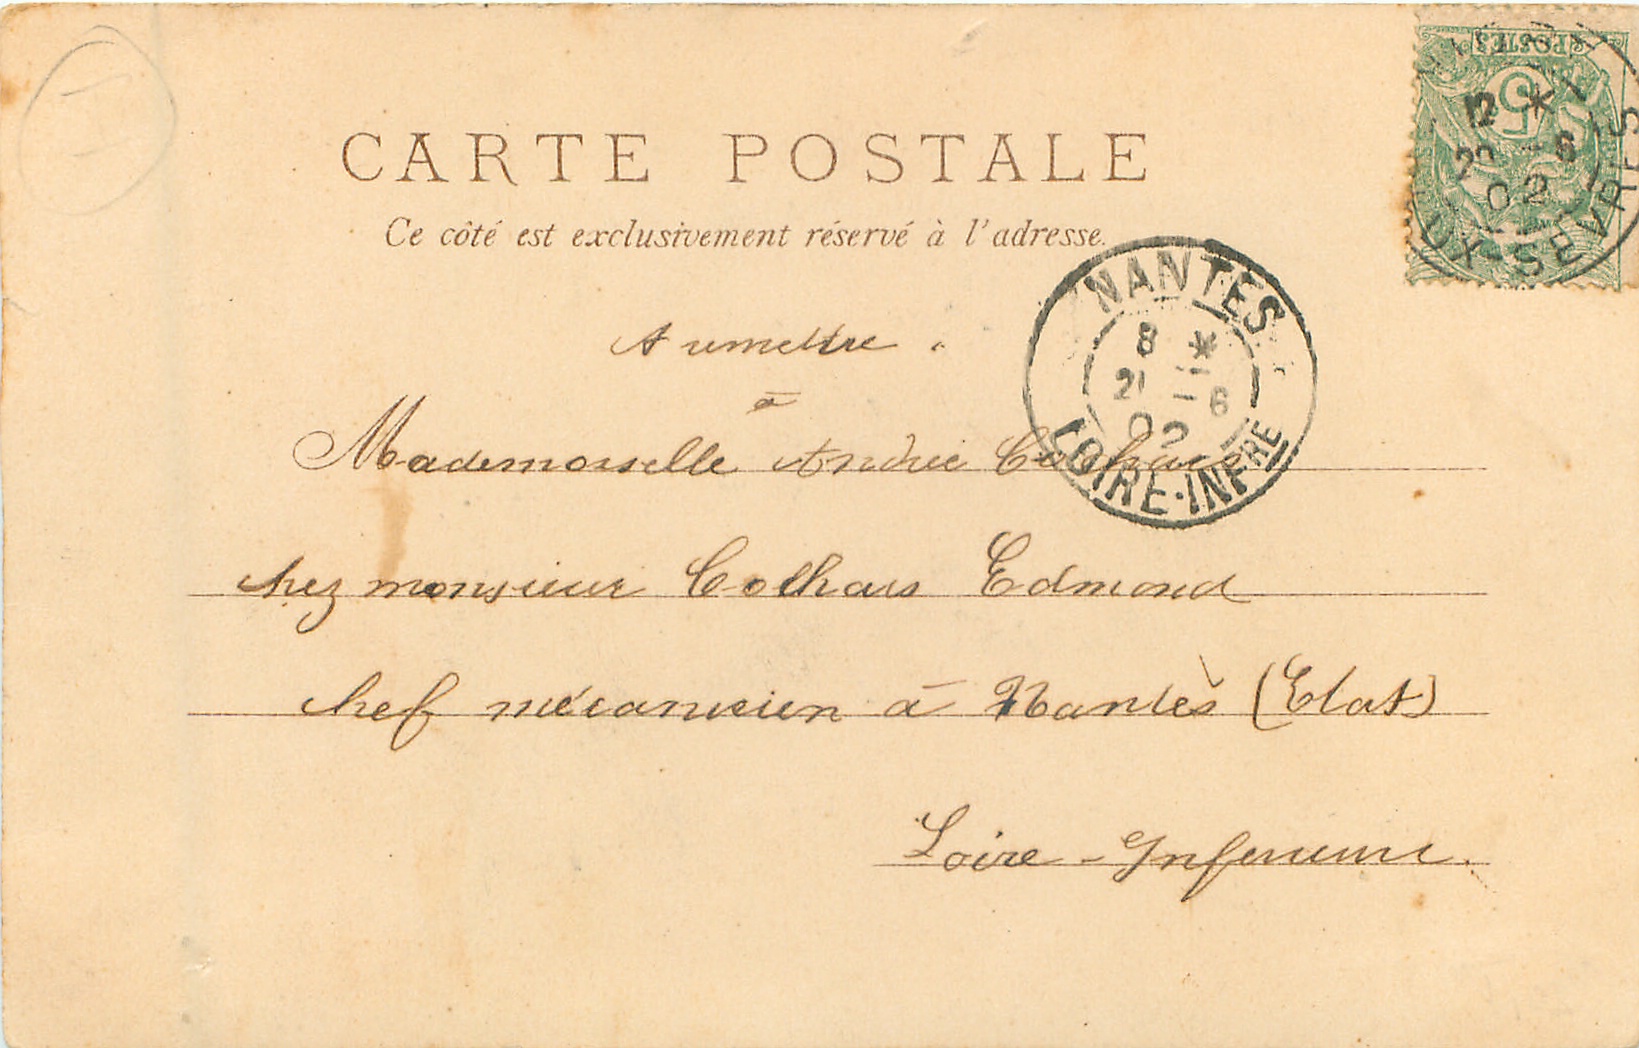 CARTE POSTALE
Ce côté est exclusivement réservé à l'adresse.
POSTES
5
12 *
20 - 6
02
UX-SEVRES
NANTES
8 *
21 - 6
02
LOIRE-INFRE
A remettre
à
Mademoiselle Andrée
chez monsieur Colhars Edmond
chef mécanicien à Nantès (Etat)
Loire-Inferieure.